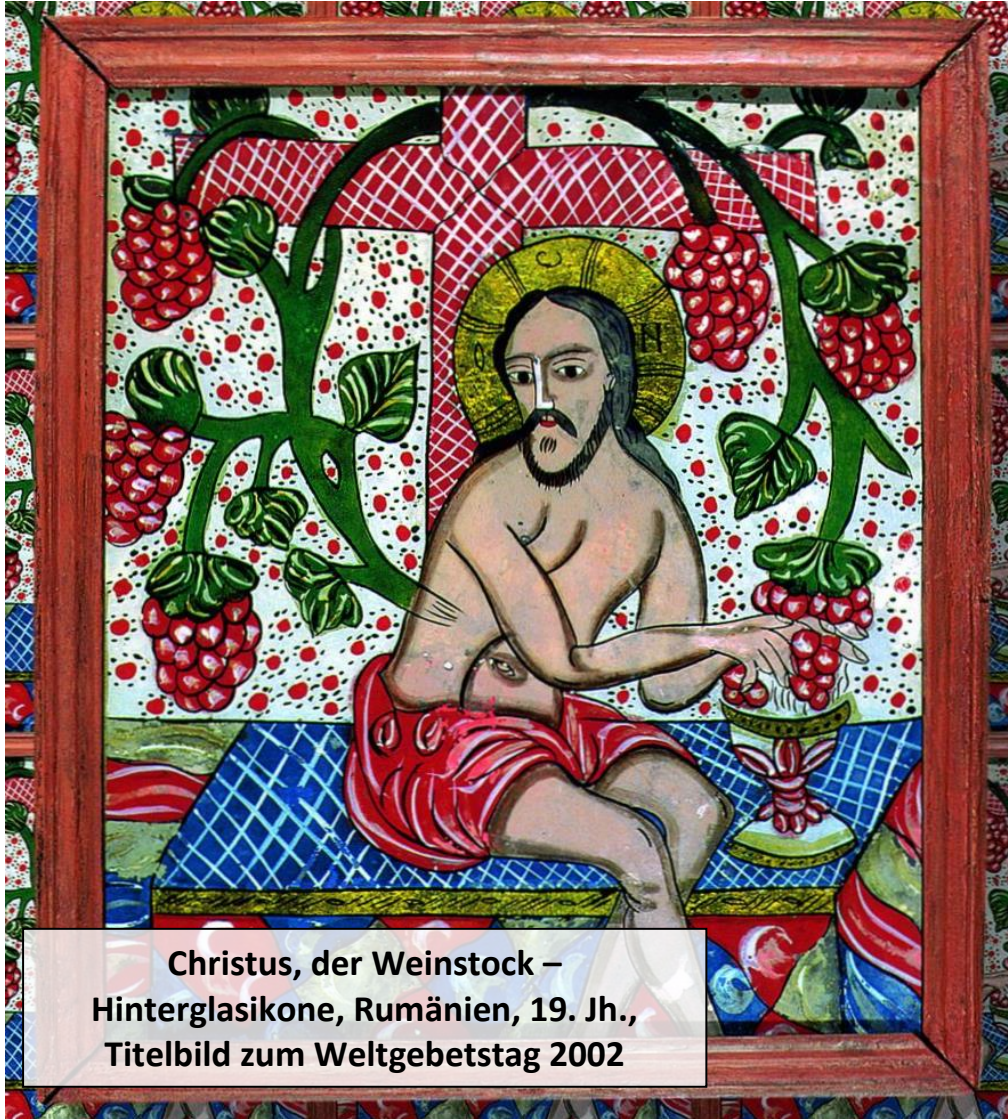 Christus, der Weinstock –
Hinterglasikone, Rumänien, 19. Jh.,
Titelbild zum Weltgebetstag 2002